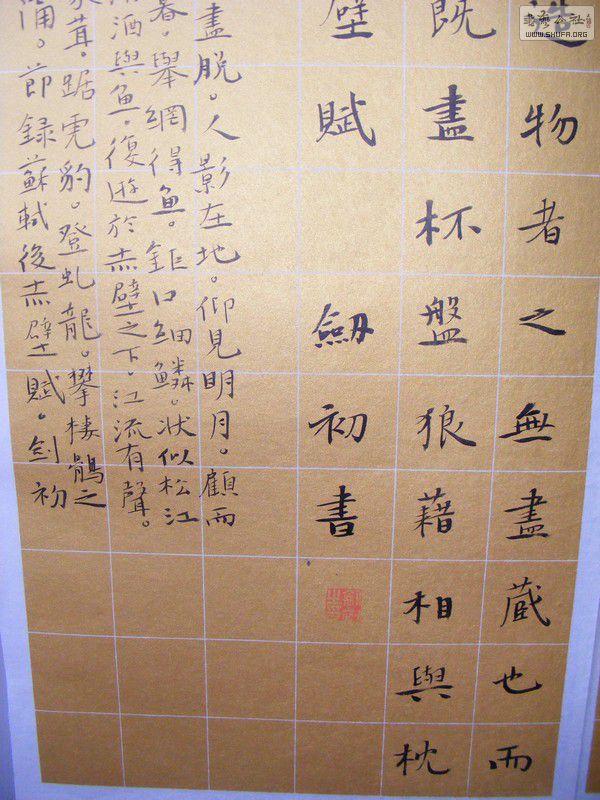 造物者之無盡蔵也而
既盡杯盤狼藉相與枕
壁賦 劒初書
盡脱。人影在地。仰見明月。顧而
暮。舉網得魚。鉅口細鱗。状似松江
酒與魚。復遊於赤壁之下。江流有聲。
茸。踞虎豹。登虬龍。攀棲鶻之
涌。節録蘇軾後赤壁賦。剑初
WWW.SHUFA.ORG